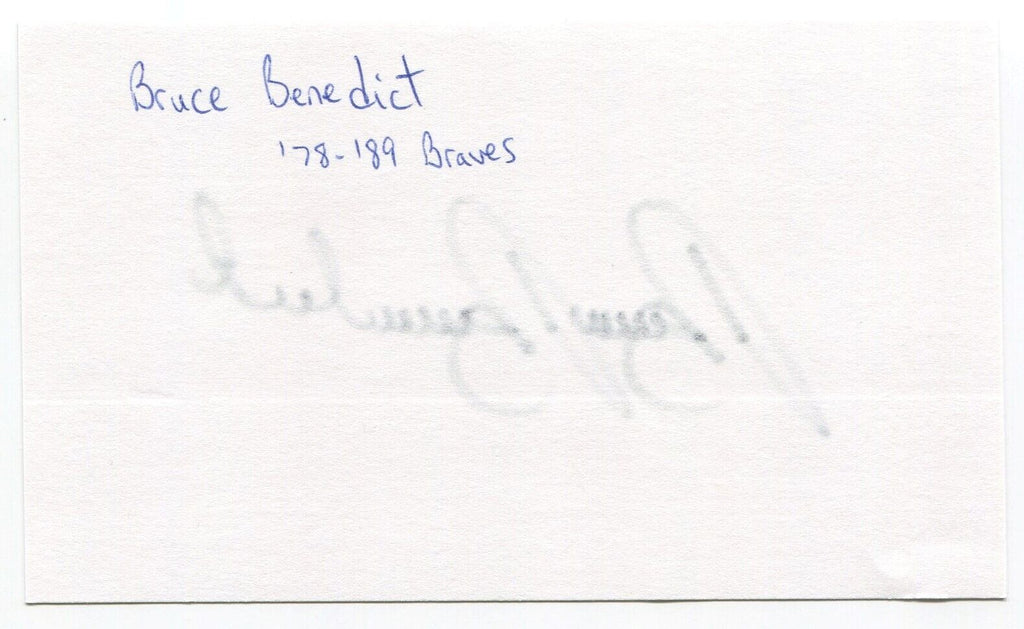 Bruce Benedict
'78-'89 Braves